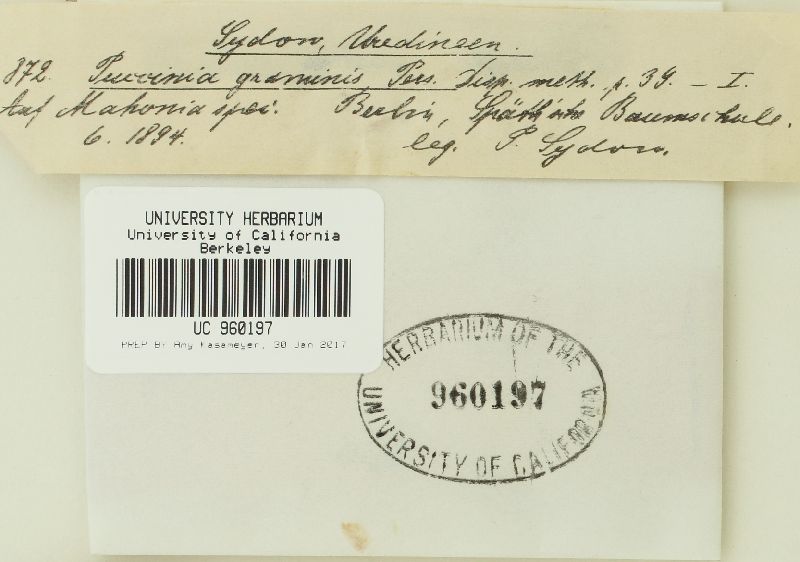 Sydow, Uredineen.
872. Puccinia graminis Pers. Disp. meth. p. 39. – I.
Auf Mahonia spec. Berlin, Späth'sche Baumschule.
6. 1894. leg. P. Sydow.
UNIVERSITY HERBARIUM
University of California
Berkeley
UC 960197
PREP BY Amy Kasameyer, 30 Jan 2017
HERBARIUM OF THE
960197
UNIVERSITY OF CALIFORNIA